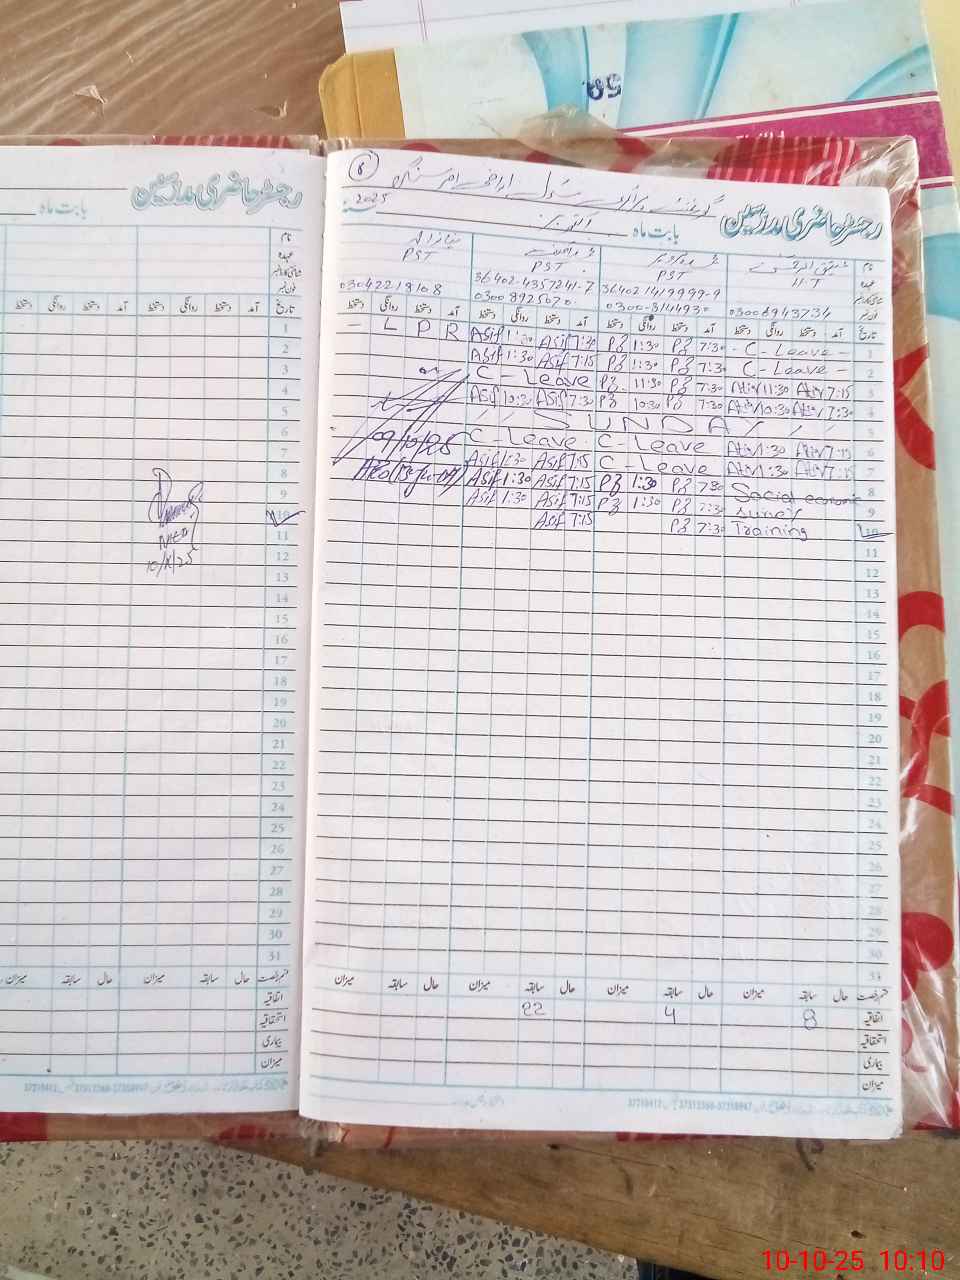 59
رجسٹر حاضری مدرسین
بابت ماہ
نام
عہدہ
شناختی کارڈ نمبر
فون نمبر
تاریخ
آمد دستخط روانگی دستخط آمد دستخط روانگی دستخط
1
2
3
4
5
6
7
8
9
10
11
12
13
14
15
16
17
18
19
20
21
22
23
24
25
26
27
28
29
30
31
10/X/25
قسم رخصت حال سابقہ میزان حال سابقہ میزان
اتفاقیہ
استحقاقیہ
بیماری
میزان
6
گورنمنٹ پرائمری سکول
رجسٹر حاضری مدرسین
بابت ماہ اکتوبر 2025
نام
عہدہ PST PST PST
شناختی کارڈ نمبر 36402-4357241-7 36402 1419999-9
فون نمبر 0300 8943734 0300-8144930 0300 8925070 03042218108
تاریخ آمد دستخط روانگی دستخط آمد دستخط روانگی دستخط آمد دستخط روانگی دستخط آمد دستخط روانگی دستخط
– L P R Asif 1:30 Asif 7:30 1:30 7:30 - C - Leave - 1
Asif 1:30 Asif 7:15 1:30 7:30 C - Leave - 2
C - Leave 11:30 7:30 11:30 7:15 3
Asif 10:30 Asif 7:30 10:30 7:30 10:30 7:30 4
SUNDAY 5
09/10/25 C - Leave C - Leave 1:30 7:15 6
Asif 1:30 Asif 7:15 C - Leave 1:30 7:15 7
Asif 1:30 Asif 7:15 1:30 7:30 Social economic 8
Asif 1:30 Asif 7:15 1:30 7:30 survey 9
Asif 7:15 7:30 Training 10
11
12
13
14
15
16
17
18
19
20
21
22
23
24
25
26
27
28
29
30
31
قسم رخصت حال سابقہ میزان حال سابقہ میزان حال سابقہ میزان حال سابقہ میزان
اتفاقیہ 8 4 22
استحقاقیہ
بیماری
میزان
10-10-25 10:10